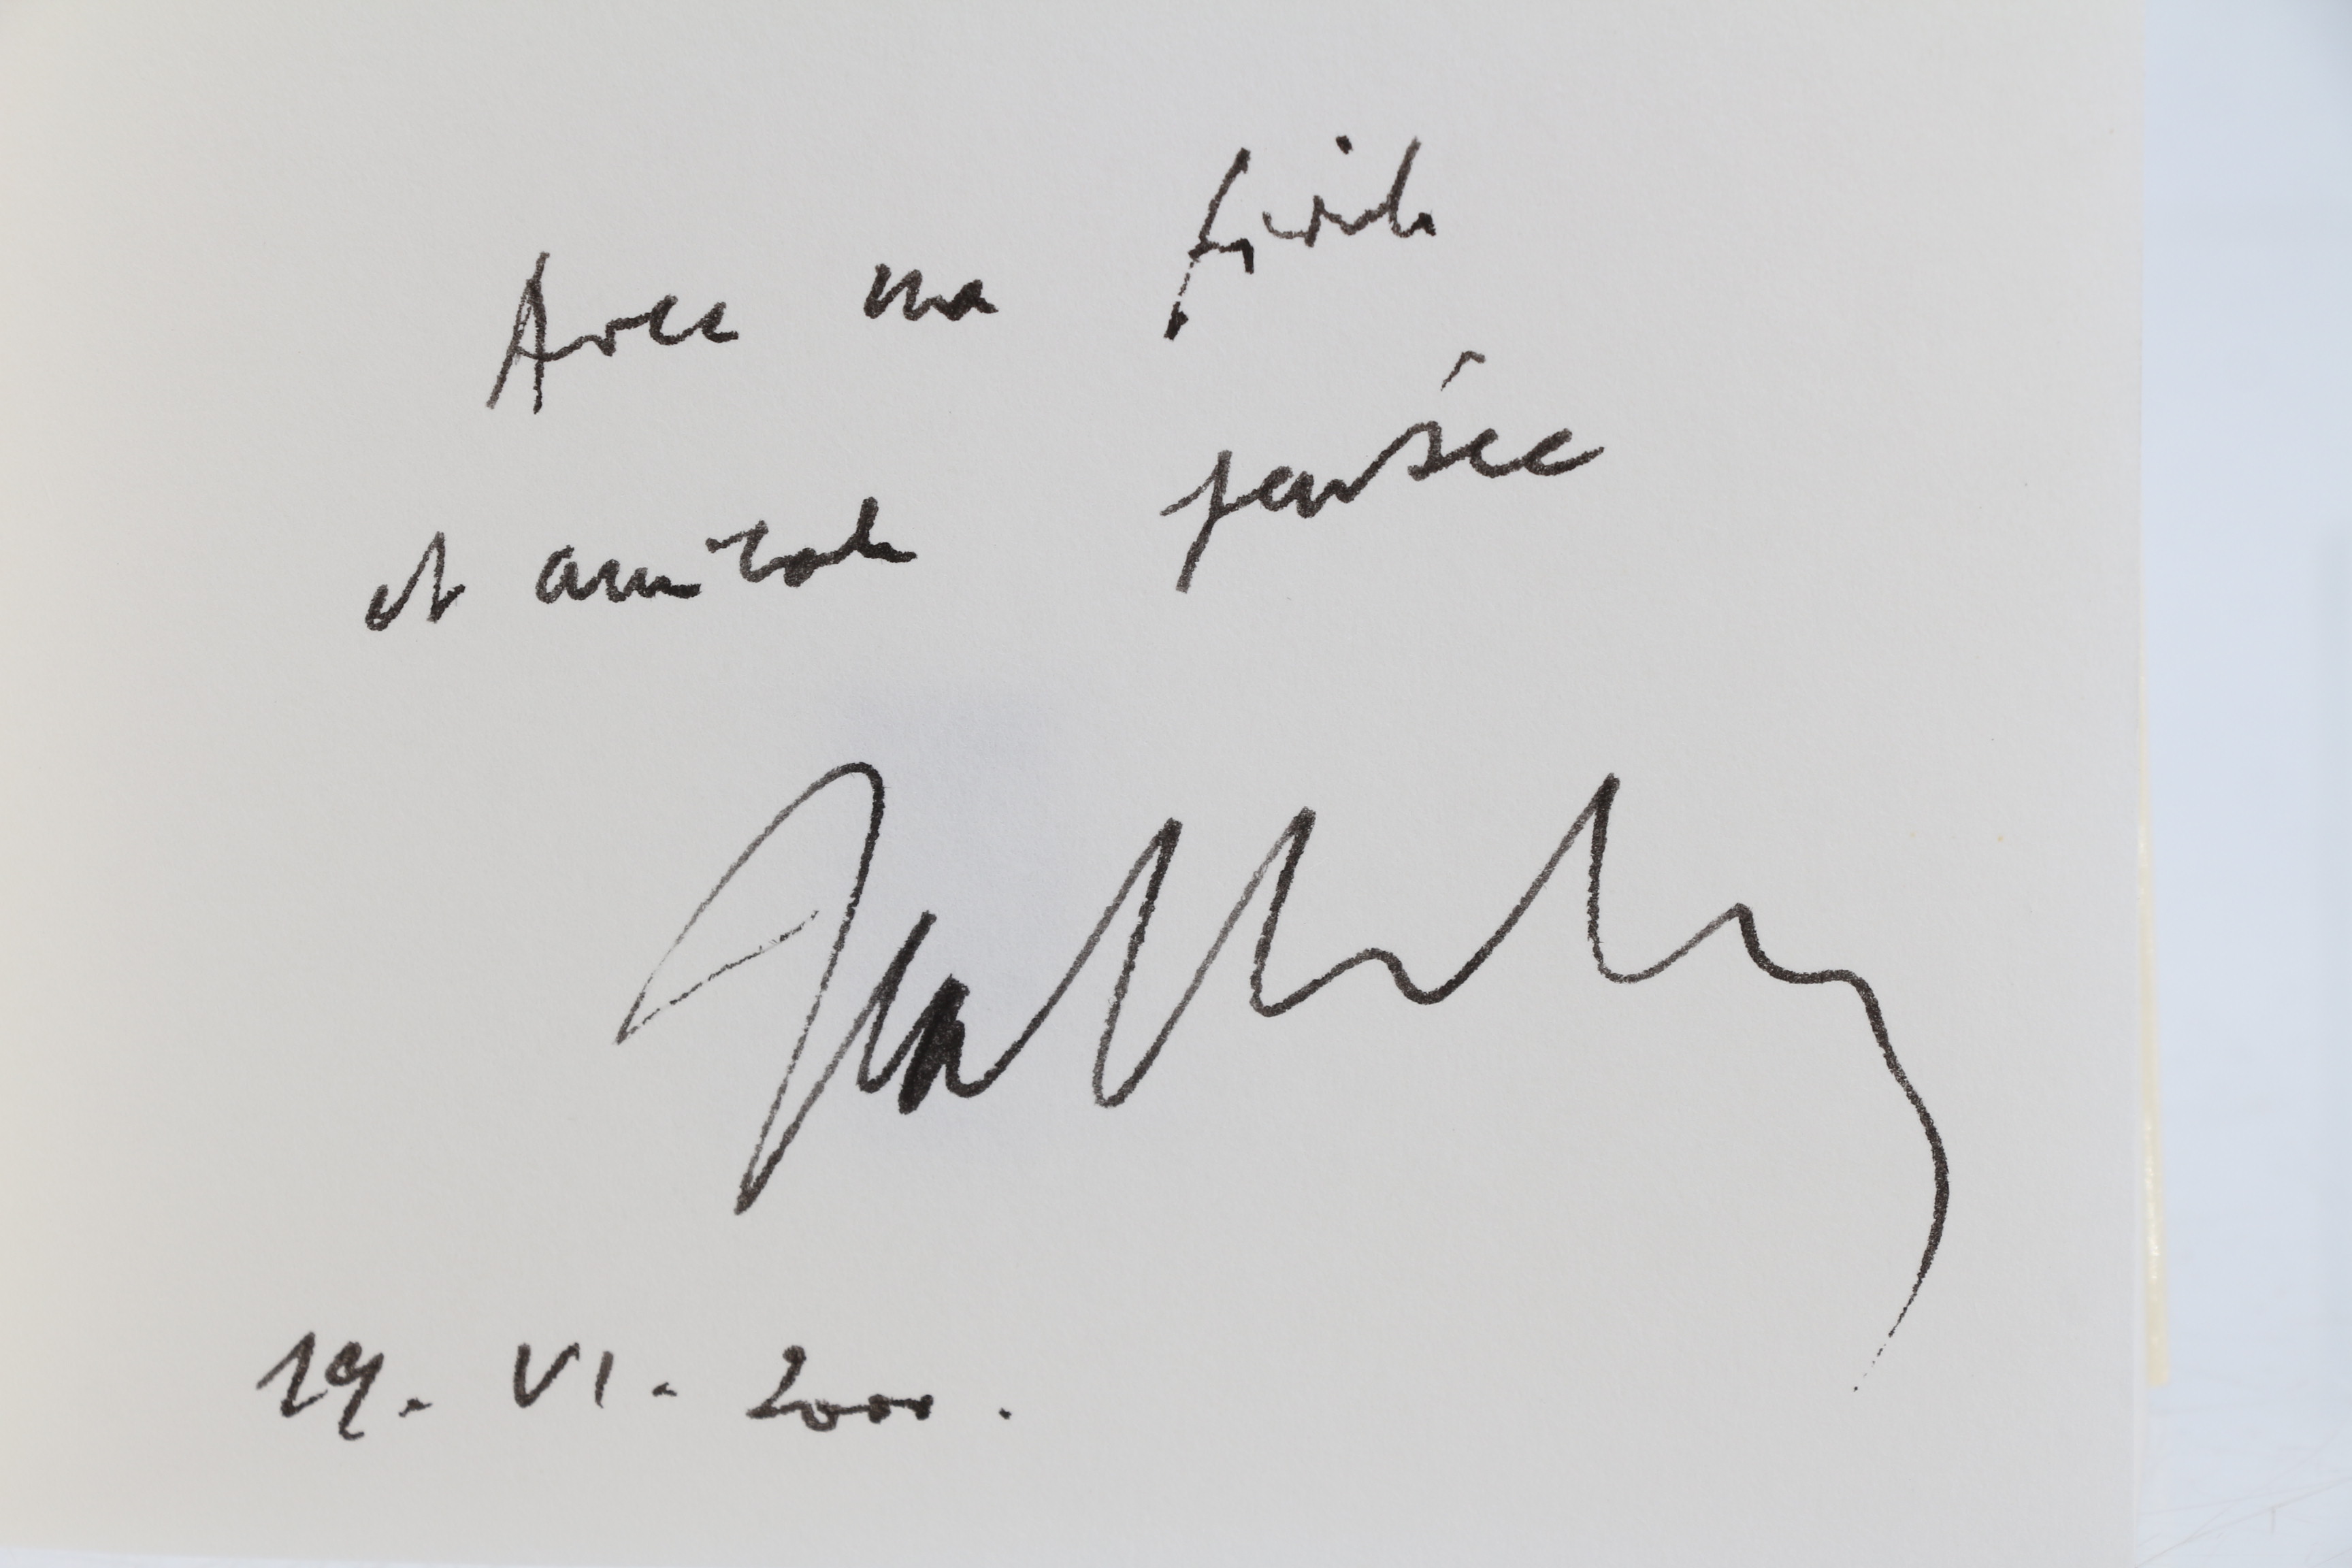 Avec ma fidèle
et amicale pensée
19. VI. 2000.